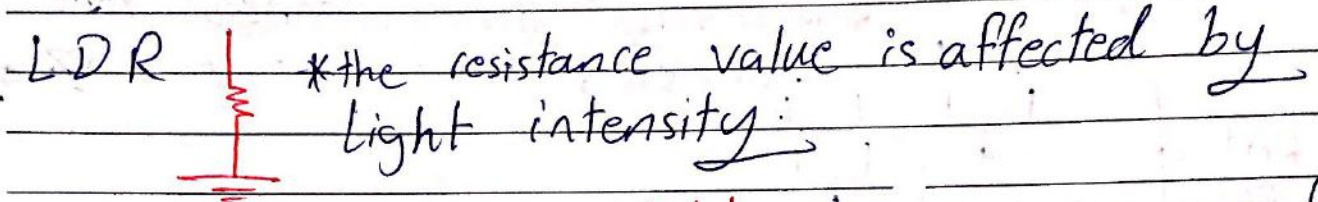 LDR *the resistance value is affected by
Light intensity.